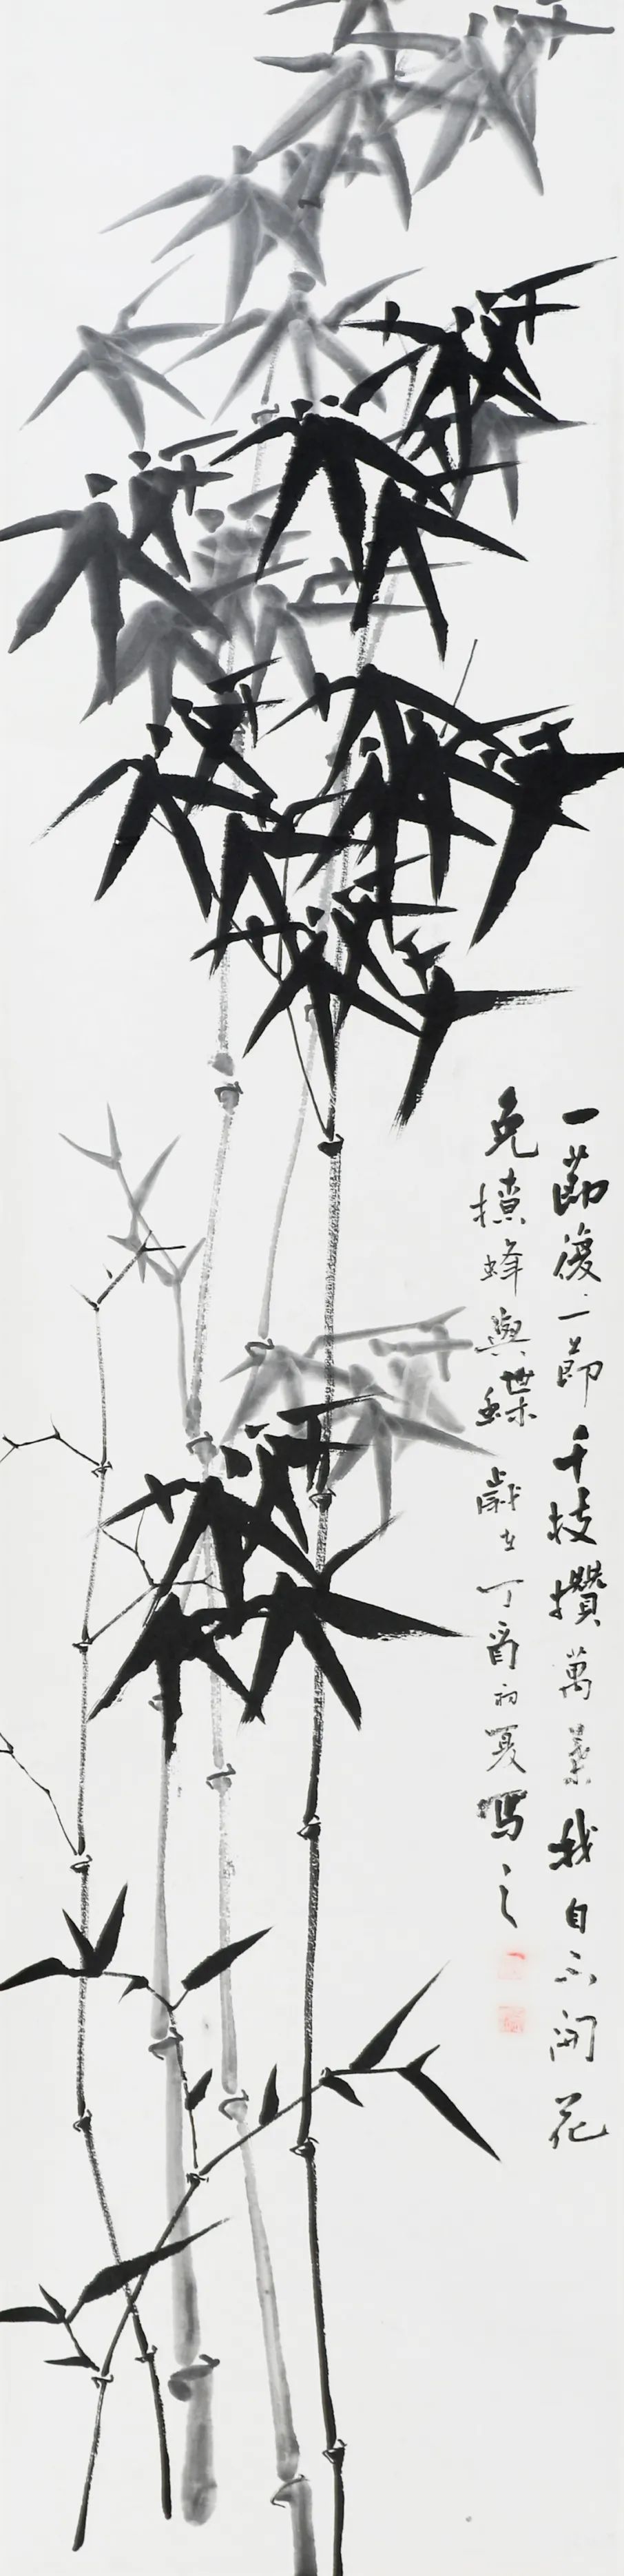 一節復一節千枝攢萬葉我自不開花
免撩蜂與蝶 歲在丁酉初夏寫之